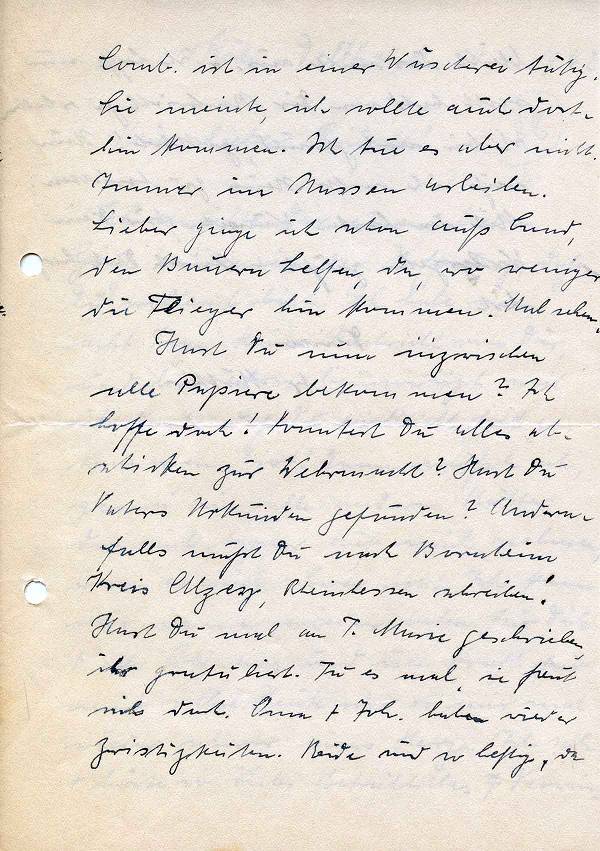 Comb. ist in einer Wäscherei tätig.
Sie meinte, ich sollte auch dort-
hin kommen. Ich tue es aber nicht.
Immer im Nassen arbeiten.
Lieber ginge ich schon aufs Land,
den Bauern helfen, da, wo weniger
die Flieger hin kommen. Mal sehen.
Hast Du nun inzwischen
alle Papiere bekommen? Ich
hoffe doch! Konntest Du alles ab-
schicken zur Wehrmacht? Hast Du
Vaters Urkunden gefunden? Andern-
falls mußt Du nach Bornheim
Kreis Alzey, Rheinhessen schreiben!
Hast Du mal an T. Marie geschrieben,
ihr gratuliert. Tu es mal, sie freut
sich doch. Oma + Joh. haben wieder
Zwistigkeiten. Beide sind so heftig, da